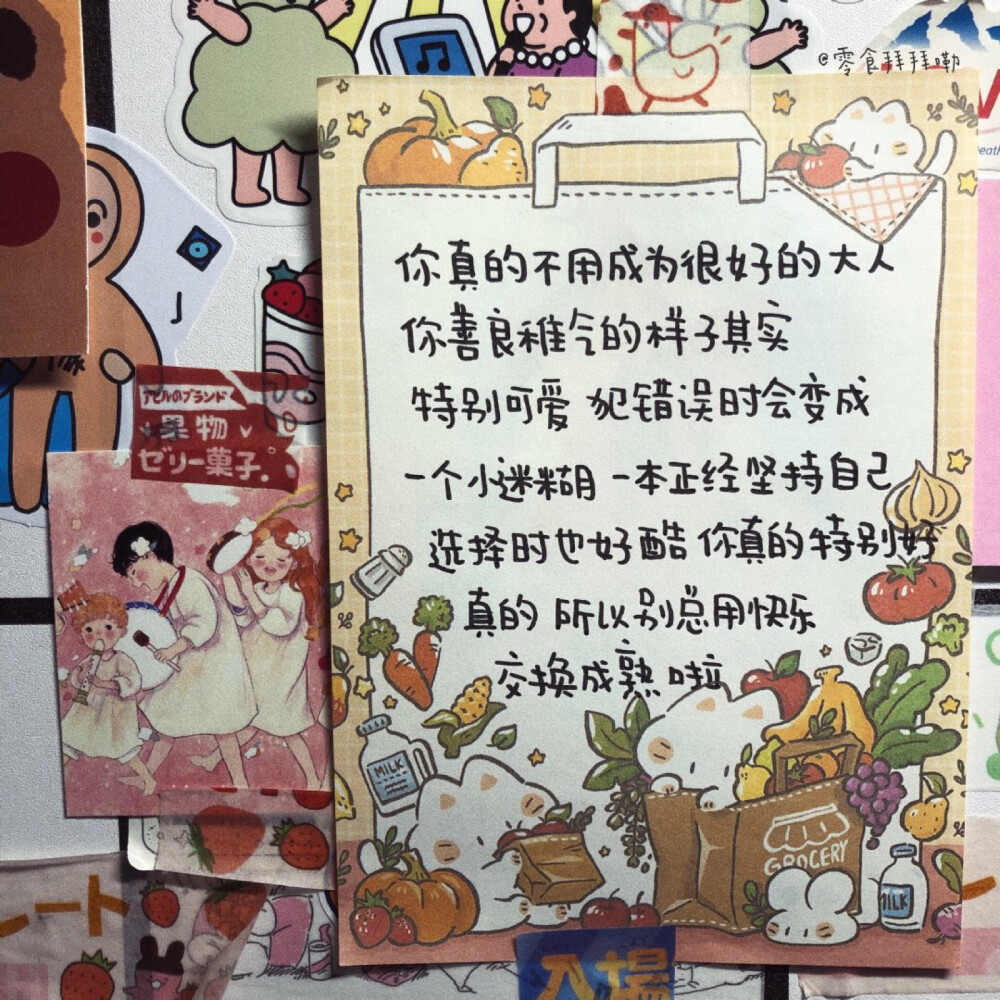 @零食拜拜嘞
你真的不用成为很好的大人
你善良稚气的样子其实
特别可爱 犯错误时会变成
一个小迷糊 一本正经坚持自己
选择时也好酷 你真的特别好
真的 所以别总用快乐
交换成熟啦
アヒルのブランド
果物
ゼリー菓子。
MILK
GROCERY
MILK
入場